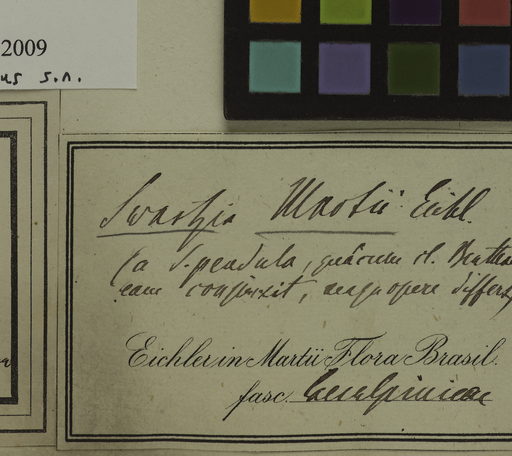 2009
us s.n.
Swartzia Martii Eichl.
(a S. pendula, quâcum cl. Benth
eam conjunxit, magnopere differt)
Eichler in Martii Flora Brasil.
fasc. Caesalpinieae